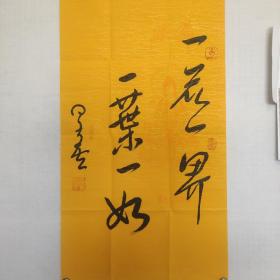 一花一界
一葉一如